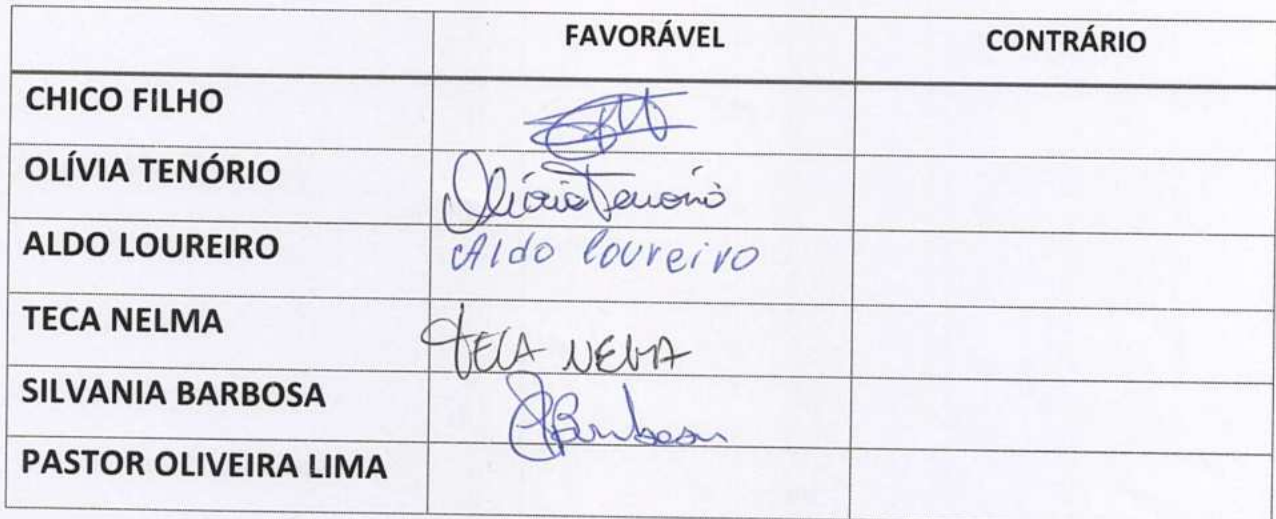 FAVORÁVEL CONTRÁRIO
CHICO FILHO
OLÍVIA TENÓRIO Olívia Tenório
ALDO LOUREIRO Aldo loureiro
TECA NELMA TECA NELMA
SILVANIA BARBOSA SBarbosa
PASTOR OLIVEIRA LIMA